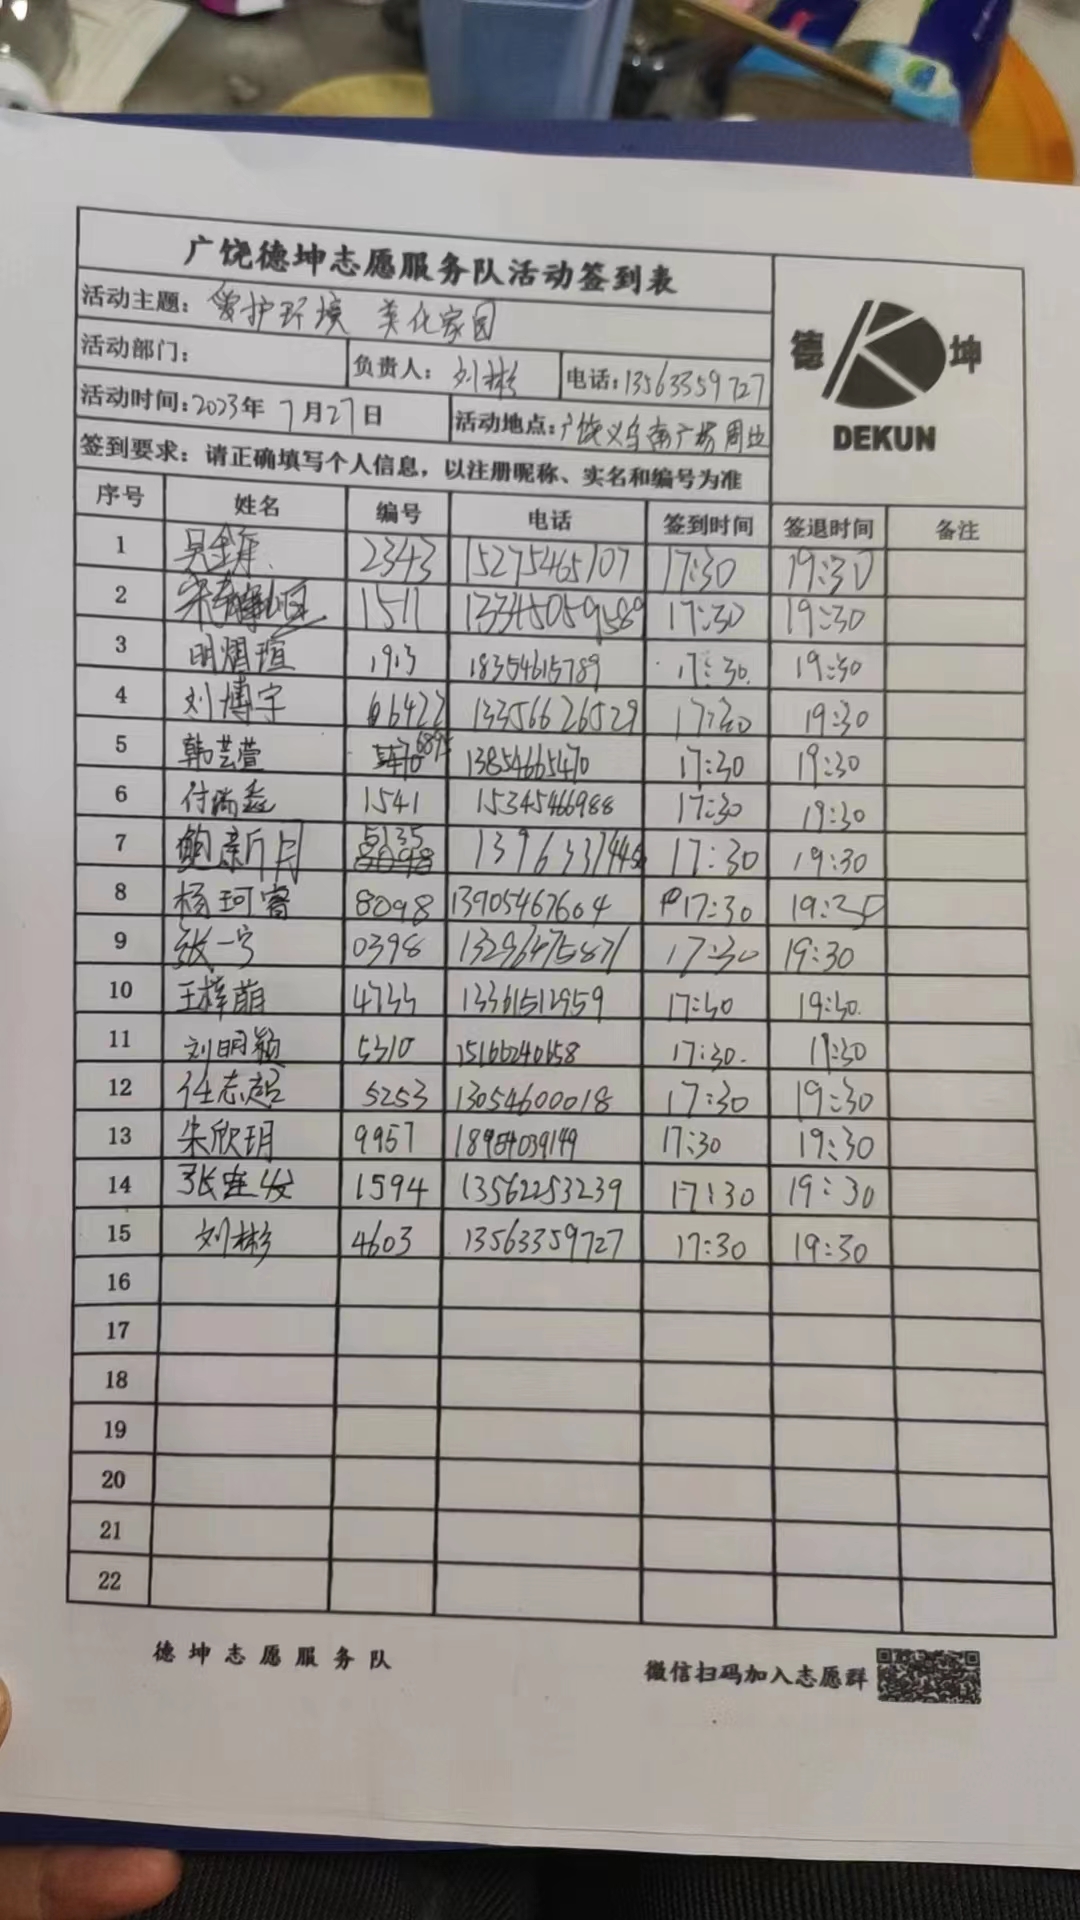 广饶德坤志愿服务队活动签到表
活动主题：爱护环境 美化家园
德 坤
DEKUN
活动部门： 负责人：刘彬 电话：13563359727
活动时间：2023年7月27日 活动地点：广饶义乌南广场周边
签到要求：请正确填写个人信息，以注册昵称、实名和编号为准
序号 姓名 编号 电话 签到时间 签退时间 备注
1 吴金 2343 15275465107 17:30 19:30
2 宋 1511 13345059589 17:30 19:30
3 明熠瑄 1913 18354615789 17:30 19:30
4 刘博宇 66422 13356626529 17:30 19:30
5 韩芸萱 13854665470 17:30 19:30
6 付瑞鑫 1541 15345466988 17:30 19:30
7 鲍新月 5135 17:30 19:30
8 杨珂睿 8098 13905467604 17:30 19:30
9 张一宁 0398 13296475871 17:30 19:30
10 王梓萌 4733 13361512959 17:30 19:30
11 刘明颖 5310 15166240658 17:30 19:30
12 任志超 5253 13054600018 17:30 19:30
13 朱欣玥 9957 18954039149 17:30 19:30
14 张连发 1594 13562253239 17:30 19:30
15 刘彬 4603 13563359727 17:30 19:30
16
17
18
19
20
21
22
德坤志愿服务队 微信扫码加入志愿群